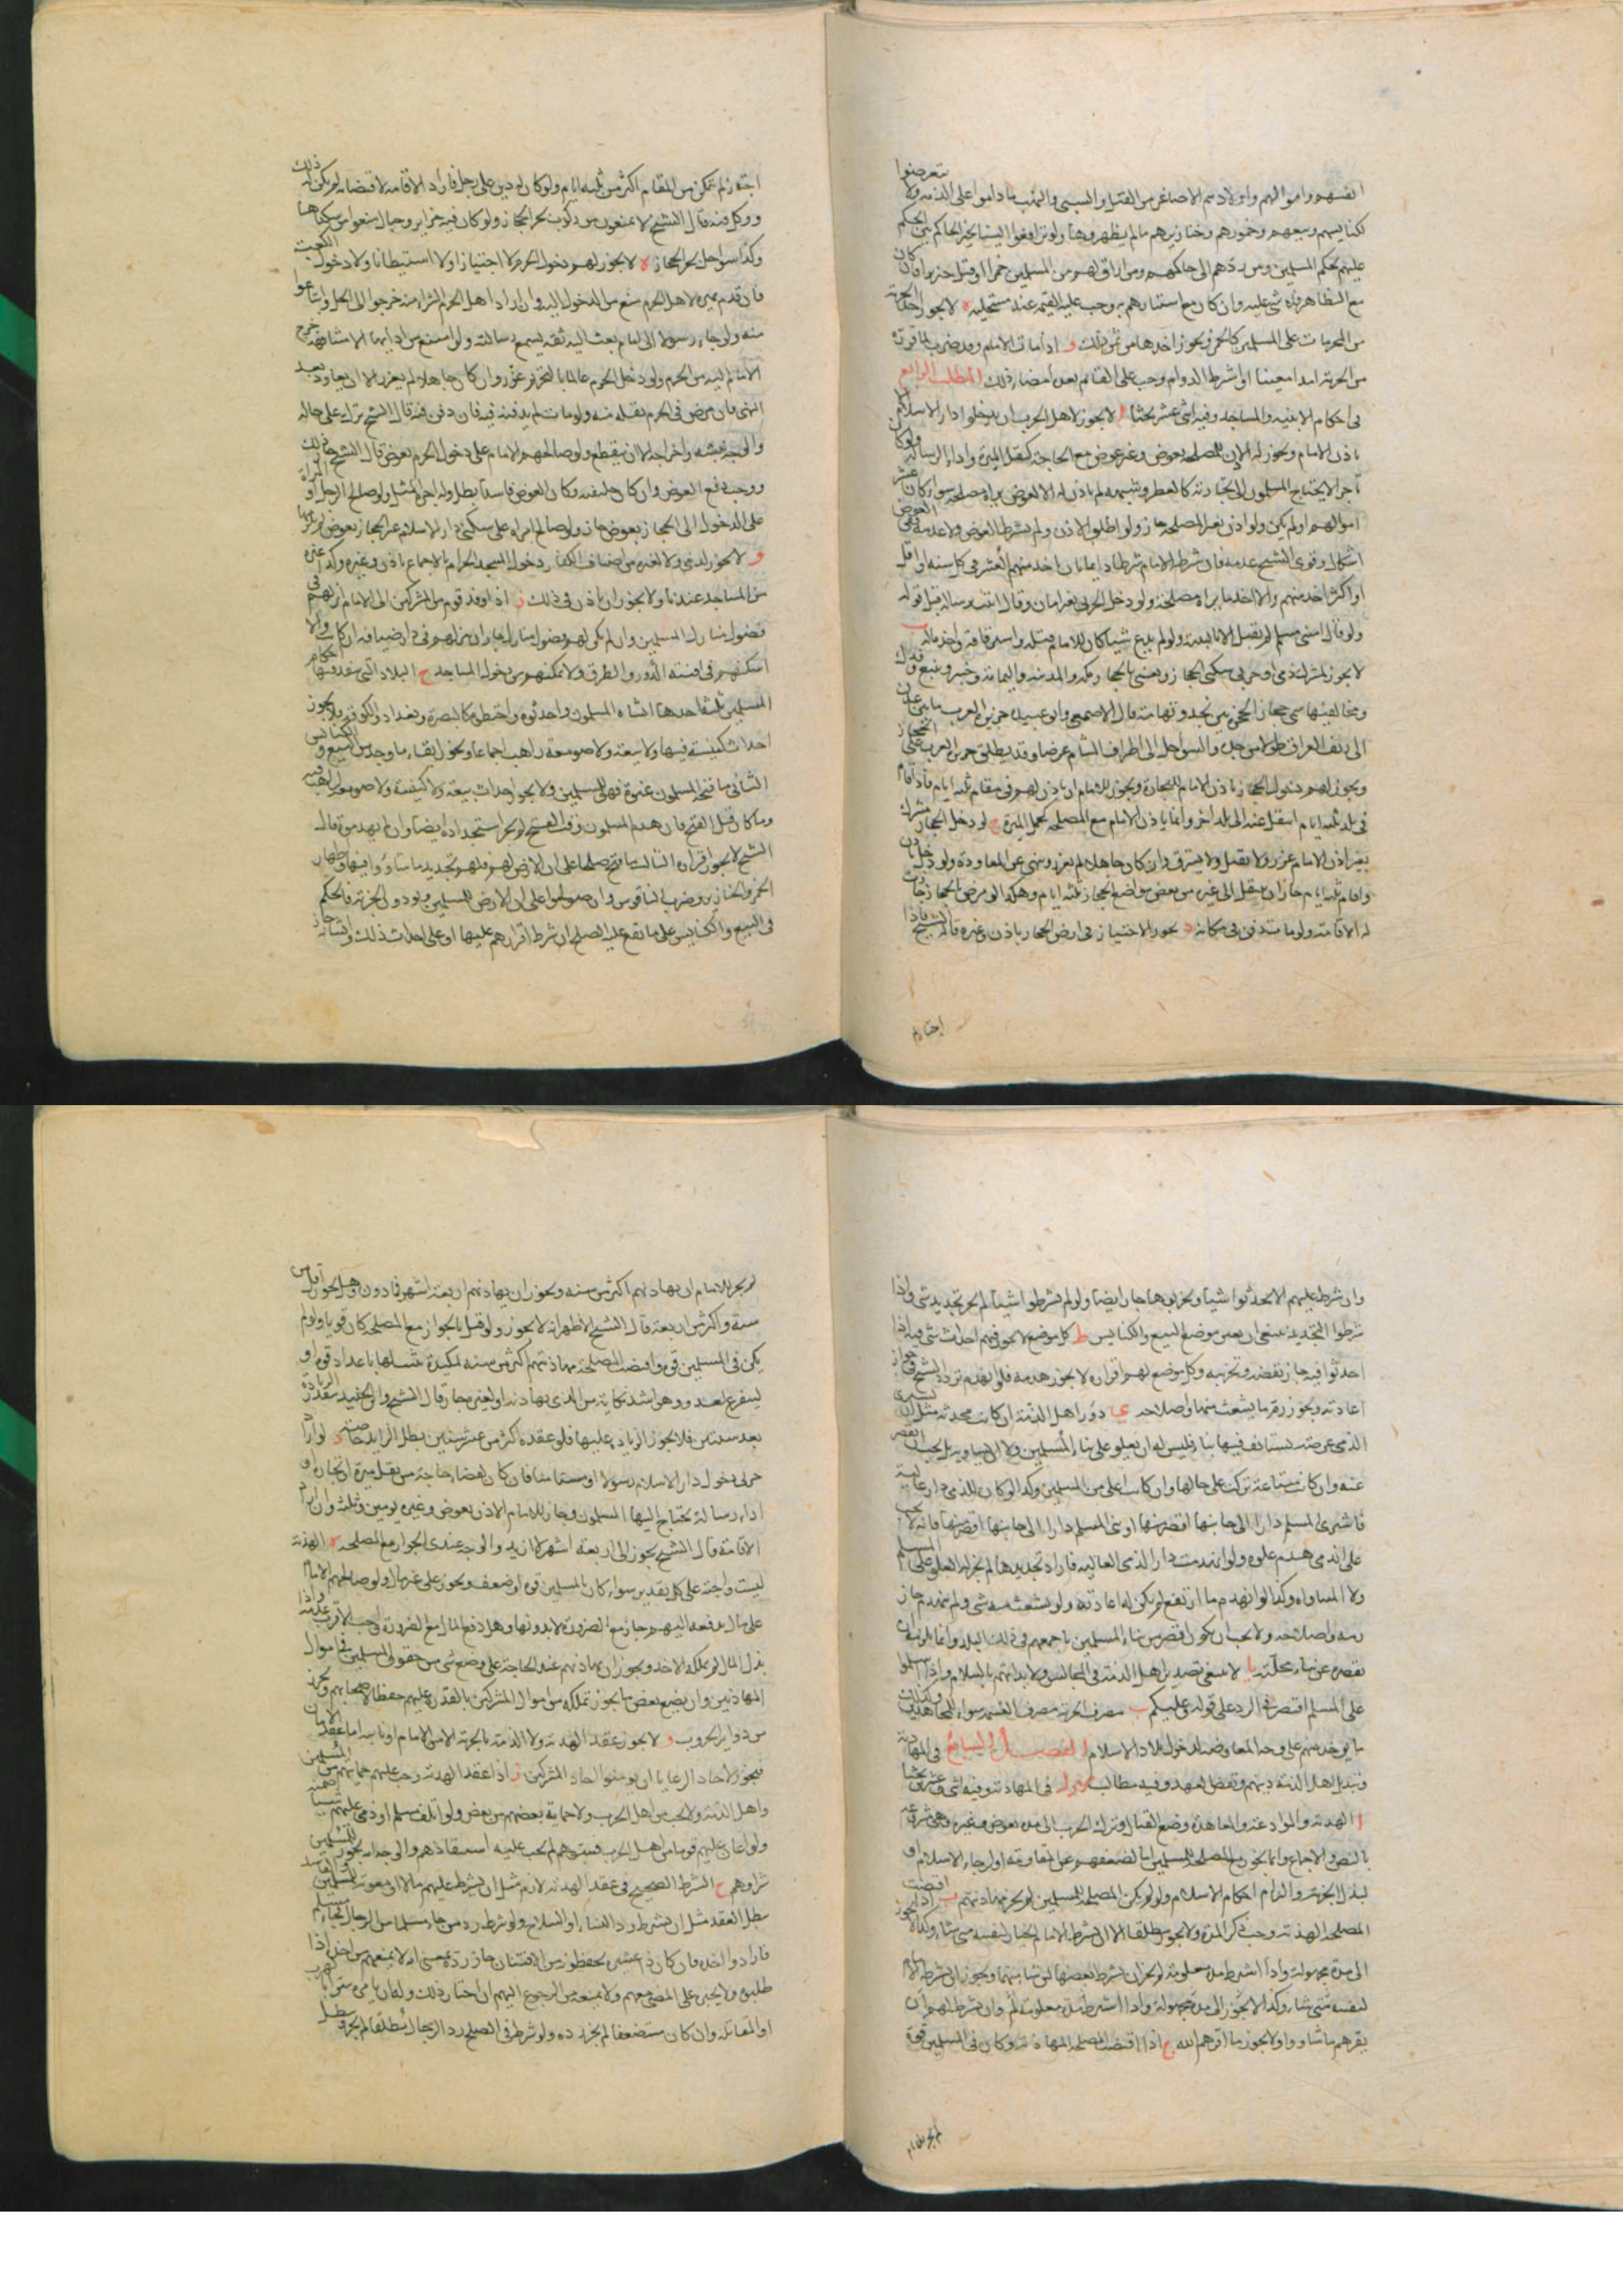 انفسهم واموالهم واولادهم الاصاغر من القتل والسبي والنهب ما داموا على الذمة ولا يتعرضوا
لكنايسهم وبيعهم وخمورهم وخنازيرهم ما لم يظهروها ولو ترافعوا الينا تخير الحاكم بين الحكم
عليهم بحكم المسلمين ومن ردهم الى حاكمهم ومن اراق لهم من المسلمين خمرا او قتل خنزيرا فان كان
مع التظاهر فلا شي عليه وان كان مع استتارهم به وجب عليه القيمة عند مستحليه ه لا يجوز اخذ الجزية
من المحرمات على المسلمين كالخمر ويجوز اخذها من ثمن ذلك و اذا مات الامام وقد ضرب لما قرره
من الجزية امدا معينا او اشترط الدوام وجب على القائم بعده امضاء ذلك المطلب الرابع
في احكام الابنية والمساجد وفيه اثنى عشر بحثا ا لا يجوز لاهل الحرب ان يدخلوا دار الاسلام الا
باذن الامام ويجوز له الاذن للمصلحة بعوض وغير عوض مع الحاجة كنقل الميرة واداء الرسالة ولو كان
تاجرا لا يحتاج المسلمون الى تجارته كالعطر وشبهه لم ياذن له الا لعوض يراه مصلحة سواء كان عشر
اموالهم او لم يكن ولو اذن بغير المصلحة جاز ولو اطلق الاذن ولم يشرط العوض ولا عدمه ففي العوض
اشكال وقوى الشيخ عدمه فان شرط الامام شرطا دايما بان ياخذ منهم العشر في كل سنة او اقل
او اكثر اخذ منهم والا اخذ ما يراه مصلحة ولو دخل الحربي بغير امان وقال اتيت برسالة قبل قوله
ولو قال امنني مسلم لم يقبل الا بالبينة ولو لم يدع شيئا كان للامام قتله واسترقاقه واخذ ماله ب
لا يجوز لمشرك ذمي او حربي سكنى الحجاز ونعني بالحجاز مكة والمدينة واليمامة وخيبر وينبع وفدك
ومخاليفها سمي حجاز الحجزه بين نجد وتهامة قال الاصمعي وابو عبيدة جزيرة العرب ما بين عدن
الى ريف العراق طولا ومن جدة والسواحل الى اطراف الشام عرضا وقد يطلق جزيرة العرب على الحجاز
ويجوز لهم دخول الحجاز باذن الامام للتجارة ويجوز للامام ان ياذن لهم في مقام ثلثه ايام فاذا اقام
في بلد ثلثه ايام انتقل عنه الى بلد اخر وانما ياذن الامام مع المصلحة كحمل الميرة ج لو دخل الحجاز مشرك
بغير اذن الامام عزر ولا يقتل ولا يسترق وان كان جاهلا لم يعزر ونهي عن المعاودة ولو دخل باذن
واقام ثلثه ايام جاز ان ينتقل الى غيره من بعض مواضع الحجاز ثلثه ايام وهكذا ولو مرض بالحجاز جازت
له الاقامة ولو مات دفن في مكانه د يجوز الاجتياز في ارض الحجاز باذن وغيره قاله الشيخ فاذا
اجتاز لم
اجتاز لم يمكن من المقام اكثر من ثلثه ايام ولو كان له دين على رجل فاراد الاقامة لاقتضائه لم يكن له ذلك
ووكل فيه قال الشيخ لا يمنعون من ركوب بحر الحجاز ولو كان فيه جزاير وجبال منعوا من سكناها
وكذا سواحل بحر الحجاز ه لا يجوز لهم دخول الحرم لا اجتيازا ولا استيطانا ولا دخول الكعبة
فان قدم بميرة لاهل الحرم منع من الدخول اليه وان اراد اهل الحرم الشراء منه خرجوا الى الحل وابتاعوا
منه ولو جاء رسولا الى الامام بعث اليه ثقه يسمع رسالته ولو امتنع من ادايها الا مشافهة خرج
الامام اليه من الحرم ولو دخل الحرم عالما بالتحريم عزر وان كان جاهلا لم يعزر الا ان يعاود بعد
النهي فان مرض في الحرم نقله منه ولو مات لم يدفنه فيه فان دفن فيه قال الشيخ ترك على حاله
والوجه نبشه واخراجه الا ان يتقطع ولو صالحهم الامام على دخول الحرم بعوض قال الشيخ جاز ذلك
ووجب دفع العوض وان كان خليفته وكان العوض فاسدا بطل وله اجرة المثل ولو صالح الرجل او المراة
على الدخول الى الحجاز بعوض جاز ولو صالح المراه على سكنى دار الاسلام غير الحجاز بعوض لم يلزمها
و لا يجوز لذمي ولا لغيره من اصناف الكفار دخول المسجد الحرام بالاجماع باذن وغيره وكذا غيره
من المساجد عندنا ولا يجوز ان ياذن في ذلك ز اذا وفد قوم من المشركين الى الامام انزلهم في
فضول منازل المسلمين وان لم يكن لهم فضول منازل جاز ان ينزلهم في دار ضيافة ان كانت والا
اسكنهم في افنية الدور والطرق ولا يمكنهم من دخول المساجد ح البلاد التي ينفذ فيها احكام
المسلمين ثلثة احدها انشاه المسلمون واحدثوه واختطوه كالبصرة وبغداد والكوفة فلا يجوز
احداث كنيسة فيها ولا بيعة ولا صومعة راهب اجماعا ويجوز ابقاء ما وجد من البيع والكنايس
الثاني ما فتحه المسلمون عنوة فهي للمسلمين ولا يجوز احداث بيعة ولا كنيسة ولا صومعة راهب فيه
وما كان قبل الفتح فان هدمه المسلمون وقت الفتح لم يجز استجداده ايضا وان لم يهدموه قال
الشيخ لا يجوز اقراره الثالث ما فتح صلحا على ان الارض لهم فلهم تجديد ما شاؤا فيها واظهار
الخمر والخنازير وضرب الناقوس وان صولحوا على ان الارض للمسلمين ويؤدون الجزية فالحكم
في البيع والكنايس على ما يقع عليه الصلح ان شرط اقرارهم عليها او على احداث ذلك وانشائه جاز
وان شرط عليهم الا يحدثوا شيئا ويخربوها جاز ايضا ولو لم يشرطوا شيئا لم يجز تجديد شي واذا
شرطوا التجديد ينبغي ان يعين موضع البيع والكنايس ط كل موضع لا يجوز فيهم احداث شي فيه اذا
احدثوا فيه جاز نقضه وتخريبه وكل موضع لهم اقراره لا يجوز هدمه فلو انهدم تردد الشيخ في جواز
اعادته ويجوز رم ما يشعث منها واصلاحه ي دور اهل الذمة ان كانت محدثه مثل ان يشتري
الذمي عرصة يستانف فيها بناء فليس له ان يعلو على بناء المسلمين ولا ان يساويه بل يجب ان يقصر
عنه وان كانت مبتاعة تركت على حالها وان كانت اعلى من المسلمين وكذا لو كان للذمي دار عالية
فاشترى المسلم دارا الى جانبها اقصر منها او بنى المسلم دارا الى جانبها اقصر منها فانه لا يجب
على الذمي هدم علوه ولو انهدمت دار الذمي العالية فاراد تجديدها لم يجز له العلو على المسلم
ولا المساواه وكذا لو انهدم ما ارتفع لم يكن له اعادته ولو يشعث منه شي ولم ينهدم جاز
رمه واصلاحه ولا يجب ان يكون اقصر من بناء المسلمين باجمعهم في ذلك البلد وانما يلزمه ان
يقصره عن بناء محلته يا لا ينبغي تصدير اهل الذمة في المجالس ولا بداتهم بالسلام واذا سلموا
على المسلم اقتصر في الرد على قوله وعليكم يب مصرف الجزية مصرف الغنيمة سواء للمجاهدين وكذلك
ما يوخذ منهم على وجه المعاوضة لدخول بلاد الاسلام الفصل السابع في المهادنة
وتبديل اهل الذمة دينهم ونقض العهد وفيه مطالب الاول في المهادنة وفيه اثنى وعشرون بحثا
ا الهدنة والموادعة والمعاهدة وضع القتال وترك الحرب الى مدة بعوض وغيره وهي مشروعة
بالنص والاجماع وانما يجوز مع المصلحة للمسلمين اما لضعفهم عن مقاومتهم او لرجاء الاسلام او
لبذل الجزية والتزام احكام الاسلام ولو لم يكن المصلحة للمسلمين لم يجز مهادنتهم ب اذا اقتضت
المصلحة الهدنة وجب ذكر المدة ولا يجوز مطلقا الا ان يشترط الامام الخيار لنفسه متى شاء وكذا لا يجوز
الى مدة مجهولة واذا اشترط مدة معلومة لم يجز ان يشرط نقضها لمن شاء منهما ويجوز ان يشرط الامام
لنفسه متى شاء وكذا لا يجوز الى مدة مجهولة واذا اشترط مدة معلومة لم وان شرط لهم ان
يقرهم ما شاء ولا يجوز ما اقرهم الله ج اذا اقتضت المصلحة المهادنة وكان في المسلمين قوة
لم يجز للامام
لم يجز للامام ان يهادنهم اكثر من سنه ويجوز ان يهادنهم اربعة اشهر فما دون وهل يجوز اقل من
سنة واكثر من اربعة قال الشيخ الاظهر انه لا يجوز ولو قيل بالجواز مع المصلحة كان قويا ولو لم
يكن في المسلمين قوة واقتضت المصلحة مهادنتهم اكثر من سنه لمكيدة عسلها باعداد قوة او
ليتفرغ لعدو وهو اشد نكاية من الذي يهادنه او لغير ذلك جاز قال الشيخ وابن الجنيد مقدر الزيادة
بعشر سنين فلا يجوز الزيادة عليها فلو عقده اكثر من عشر سنين بطل الزايد خاصة د لو اراد
حربي دخول دار الاسلام رسولا او مستامنا فان كان لقضاء حاجة من نقل ميرة او تجارة او
اداء رسالة يحتاج اليها المسلمون جاز للامام الاذن بعوض وغيره يومين وثلثه وان اراد
الاقامة قال الشيخ يجوز الى اربعة اشهر لا ازيد والوجه عندي الجواز مع المصلحة ه الهدنة
ليست واجبة على كل تقدير سواء كان بالمسلمين قوة او ضعف ويجوز على غير مال ولو صالحهم الامام
على مال يدفعه اليهم جاز مع الضرورة لا بدونها وهل دفع المال مع الضرورة واجب الاقرب عدمه واذا
بذل المال لم يملكه الاخذ ويجوز ان يهادنهم عند الحاجة على وضع شي من حقوق المسلمين في اموال
المهادنين وان يضع بعض ما يجوز تملكه من اموال المشركين بالقدرة عليهم حفظا لاصحابهم وتحرزا
من دواير الحروب و لا يجوز عقد الهدنة ولا الذمة بالجزية الا من الامام او نايبه اما عقد الامان
فيجوز لاحاد الرعايا ان يومنوا احاد المشركين ز اذا عقد الهدنة وجب عليهم حمايتهم من المسلمين
واهل الذمة ولا يجب من اهل الحرب ولا حماية بعضهم من بعض ولو اتلف مسلم او ذمي عليهم شيئا ضمنه
ولو اغار عليهم قوم من اهل الحرب فسبوهم لم يجب عليه استنقاذهم والوجه انه يجوز للمسلمين
شراوهم ح الشرط الصحيح في عقد الهدنة لازم مثل ان يشرط عليهم مالا او معونة للمسلمين والفاسد
يبطل العقد مثل ان يشرط رد النساء او السلاح ولو شرط رد من جاء مسلما من الرجال فجاء مسلم
فارادوا اخذه فان كان ذا عشيرة يحفظونه من الافتتان جاز رده بمعنى انه لا يمنعهم من اخذه اذا
طلبوه ولا يجبره على المضي معهم ولا يمنعه من الرجوع اليهم ان اختار ذلك وله ان يامره سرا بالهرب
او المقاتلة وان كان مستضعفا لم يجز رده ولو شرط في الصلح رد الرجال مطلقا لم يجز ويبطل